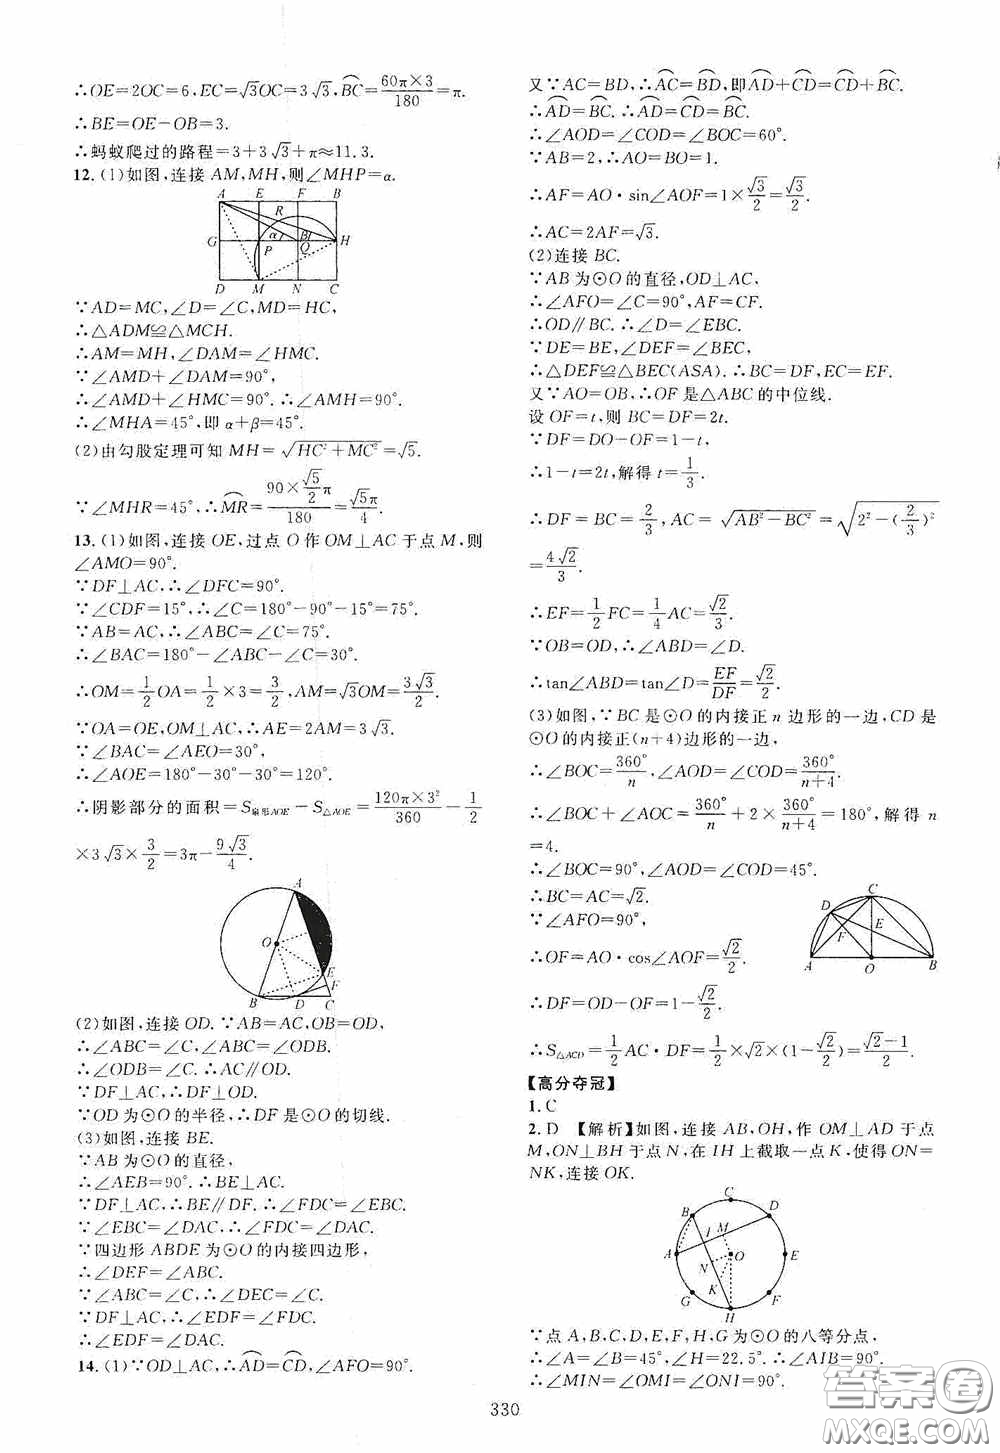 ∴OE=2OC=6,EC=√3OC=3√3,B͡C=60π×3/180=π.
∴BE=OE-OB=3.
∴蚂蚁爬过的路程=3+3√3+π≈11.3.
12.(1)如图,连接AM,MH,则∠MHP=α.
A E F B
R
G α β H
P Q
D M N C
∵AD=MC,∠D=∠C,MD=HC,
∴△ADM≌△MCH.
∴AM=MH,∠DAM=∠HMC.
∵∠AMD+∠DAM=90°,
∴∠AMD+∠HMC=90°.∴∠AMH=90°.
∴∠MHA=45°,即α+β=45°.
(2)由勾股定理可知MH=√(HC²+MC²)=√5.
∵∠MHR=45°,∴M͡R=(90×(√5/2)π)/180=√5π/4.
13.(1)如图,连接OE,过点O作OM⊥AC于点M,则
∠AMO=90°.
∵DF⊥AC,∴∠DFC=90°.
∵∠CDF=15°,∴∠C=180°-90°-15°=75°.
∵AB=AC,∴∠ABC=∠C=75°.
∴∠BAC=180°-∠ABC-∠C=30°.
∴OM=1/2OA=1/2×3=3/2,AM=√3OM=3√3/2.
∵OA=OE,OM⊥AC,∴AE=2AM=3√3.
∴∠BAC=∠AEO=30°.
∴∠AOE=180°-30°-30°=120°.
∴阴影部分的面积=S扇形AOE-S△AOE=120π×3²/360-1/2
×3√3×3/2=3π-9√3/4.
A
O
E
F
B D C
(2)如图,连接OD.∵AB=AC,OB=OD,
∴∠ABC=∠C,∠ABC=∠ODB.
∴∠ODB=∠C.∴AC∥OD.
∵DF⊥AC,∴DF⊥OD.
∵OD为⊙O的半径,∴DF是⊙O的切线.
(3)如图,连接BE.
∵AB为⊙O的直径,
∴∠AEB=90°.∴BE⊥AC.
∵DF⊥AC,∴BE∥DF.∴∠FDC=∠EBC.
∵∠EBC=∠DAC,∴∠FDC=∠DAC.
∵四边形ABDE为⊙O的内接四边形,
∴∠DEF=∠ABC.
∵∠ABC=∠C,∴∠DEC=∠C.
∵DF⊥AC,∴∠EDF=∠FDC.
∴∠EDF=∠DAC.
14.(1)∵OD⊥AC,∴A͡D=C͡D,∠AFO=90°.
又∵AC=BD,∴A͡C=B͡D,即A͡D+C͡D=C͡D+B͡C.
∴A͡D=B͡C.∴A͡D=C͡D=B͡C.
∴∠AOD=∠COD=∠BOC=60°.
∵AB=2,∴AO=BO=1.
∴AF=AO·sin∠AOF=1×√3/2=√3/2.
∴AC=2AF=√3.
(2)连接BC.
∵AB为⊙O的直径,OD⊥AC,
∴∠AFO=∠C=90°,AF=CF.
∴OD∥BC.∴∠D=∠EBC.
∵DE=BE,∠DEF=∠BEC,
∴△DEF≌△BEC(ASA).∴BC=DF,EC=EF.
又∵AO=OB,∴OF是△ABC的中位线.
设OF=t,则BC=DF=2t.
∵DF=DO-OF=1-t,
∴1-t=2t,解得t=1/3.
∴DF=BC=2/3,AC=√(AB²-BC²)=√(2²-(2/3)²)
=4√2/3.
∴EF=1/2FC=1/4AC=√2/3.
∵OB=OD,∴∠ABD=∠D.
∴tan∠ABD=tan∠D=EF/DF=√2/2.
(3)如图,∵BC是⊙O的内接正n边形的一边,CD是
⊙O的内接正(n+4)边形的一边,
∴∠BOC=360°/n,∠AOD=∠COD=360°/(n+4).
∴∠BOC+∠AOC=360°/n+2×360°/(n+4)=180°,解得n
=4.
∴∠BOC=90°,∠AOD=∠COD=45°.
∴BC=AC=√2.
∵∠AFO=90°,
∴OF=AO·cos∠AOF=√2/2.
C
D
F E
A O B
∴DF=OD-OF=1-√2/2.
∴S△ACD=1/2AC·DF=1/2×√2×(1-√2/2)=(√2-1)/2.
【高分夺冠】
1.C
2.D 【解析】如图,连接AB,OH,作OM⊥AD于点
M,ON⊥BH于点N,在IH上截取一点K,使得ON=
NK,连接OK.
C
B D
I M
A O E
N
K
G F
H
∵点A,B,C,D,E,F,H,G为⊙O的八等分点,
∴∠A=∠B=45°,∠H=22.5°.∴∠AIB=90°.
∴∠MIN=∠OMI=∠ONI=90°.
330
答案圈
MXQE.COM